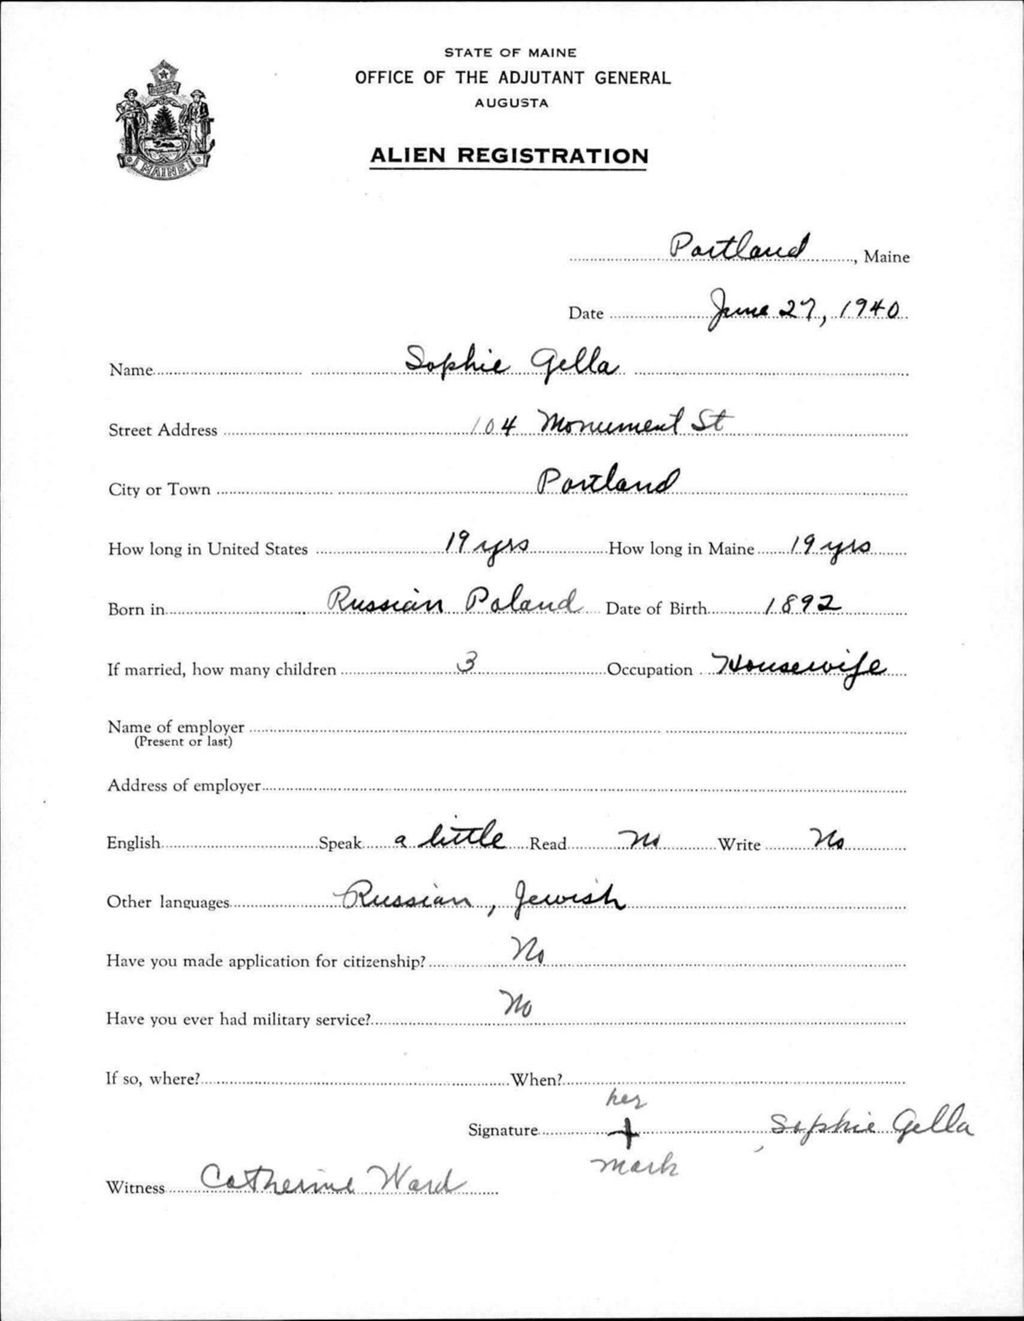 STATE OF MAINE
OFFICE OF THE ADJUTANT GENERAL
AUGUSTA
ALIEN REGISTRATION
MAINE
Portland, Maine
Date June 27, 1940
Name Sophie Gella
Street Address 104 Monument St
City or Town Portland
How long in United States 19 yrs How long in Maine 19 yrs
Born in Russian Poland Date of Birth 1892
If married, how many children 3 Occupation Housewife
Name of employer
(Present or last)
Address of employer
English Speak a little Read No Write No
Other languages Russian, Jewish
Have you made application for citizenship? No
Have you ever had military service? No
If so, where? When?
her
Signature + Sophie Gella
mark
Witness Catherine Ward